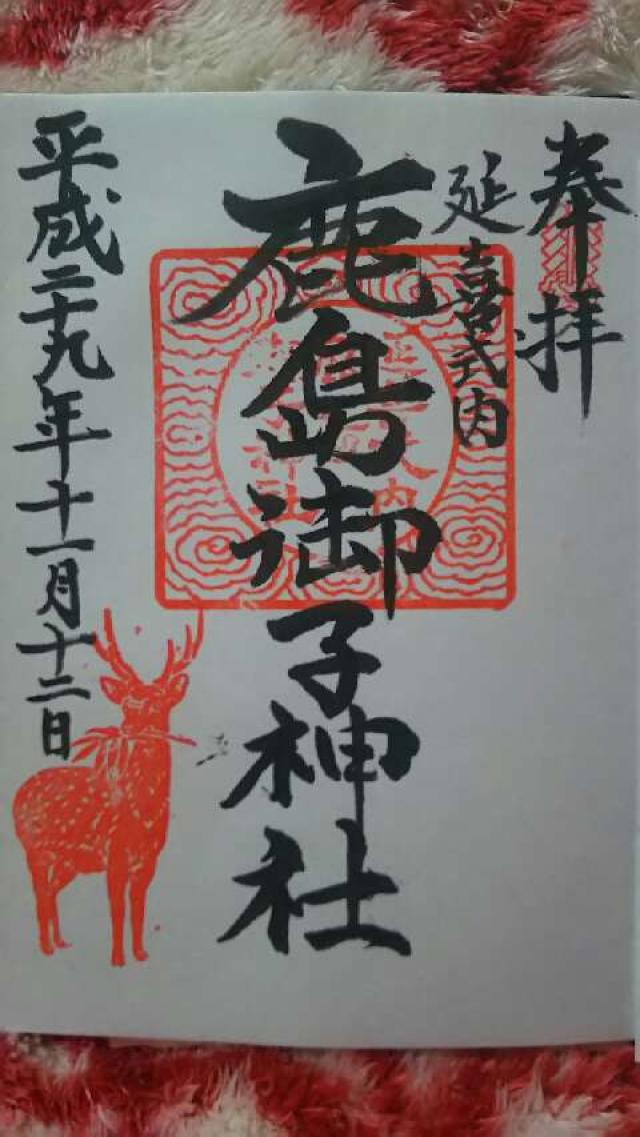 奉拝
延喜式内
鹿島御子神社
平成二十九年十一月十二日